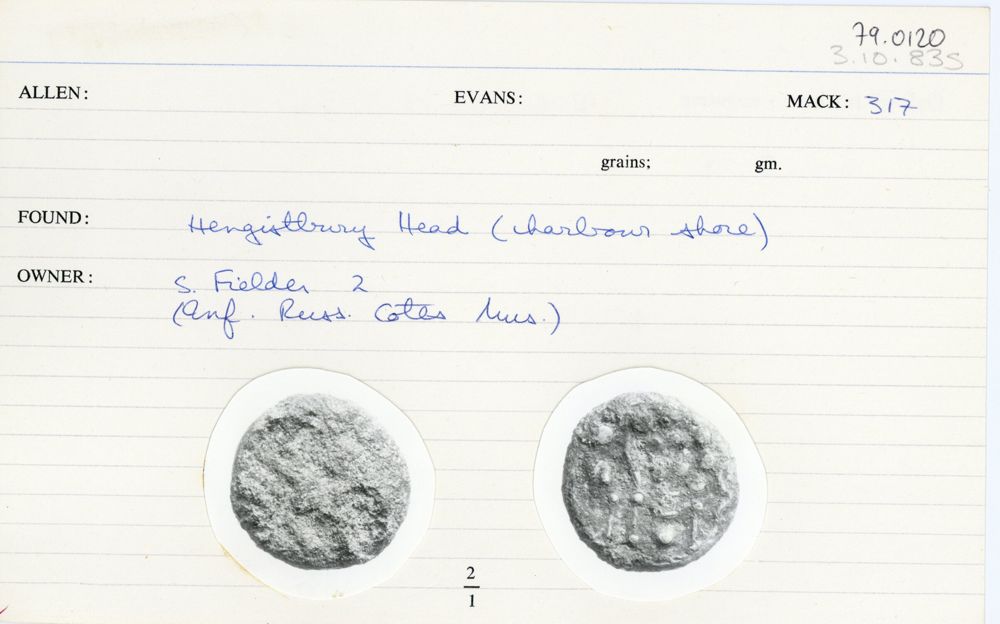 79.0120
3.10.835
ALLEN: EVANS: MACK: 317
grains; gm.
FOUND: Hengistbury Head (harbour shore)
OWNER: S. Fielder 2
(Inf. Russ. Cotes Mus.)
2
1